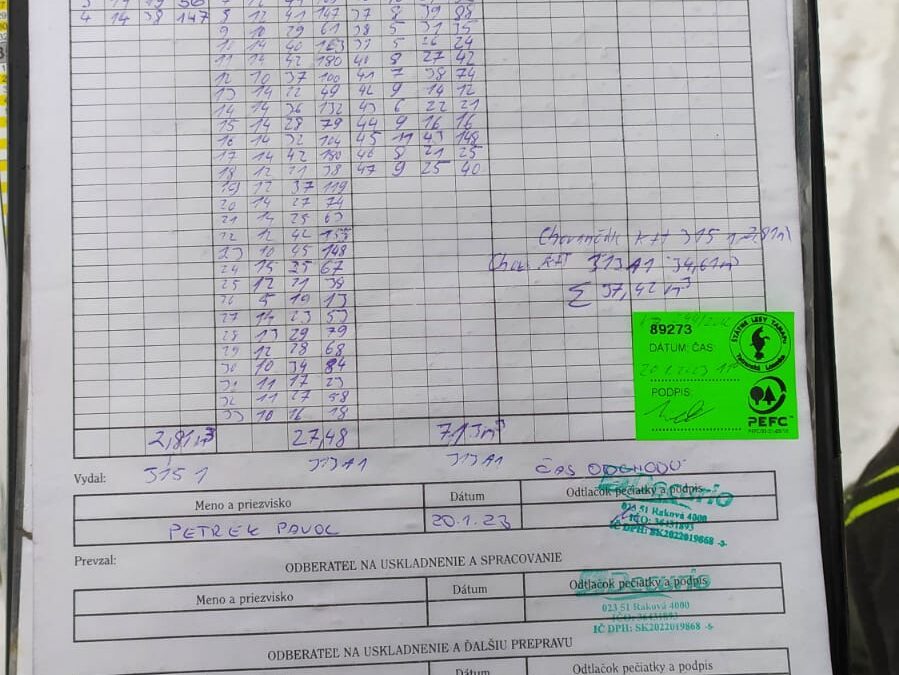 4 14 38 147 8 12 41 147 37 8 39 88
9 10 29 61 38 5 31 35
14 40 163 39 5 26 24
11 14 42 180 40 8 27 42
12 10 37 100 41 7 38 74
13 14 22 49 42 9 14 12
14 14 36 132 43 6 22 21
15 14 28 79 44 9 16 16
16 14 32 104 45 11 43 148
17 14 42 180 46 8 21 25
18 12 21 38 47 9 25 40
19 12 37 119
20 14 27 74
21 14 25 63
22 12 42 155
23 10 45 148
24 15 25 67
25 12 21 38
26 5 10 13
27 14 23 53
28 13 29 79
29 12 28 68
30 10 34 84
31 11 17 23
32 11 27 58
33 10 16 18
315
313A1 34,61m
Σ 37,42 m³
89273
DÁTUM, ČAS:
20.1.23
PODPIS:
ŠTÁTNE LESY TANAPu
Tatranská Lomnica
PEFC
2,81m³ 27,48 7,13m³
315 1 313A1 313A1 ČAS ODCHODU
Vydal:
Meno a priezvisko Dátum Odtlačok pečiatky a podpis
PETREK PAVOL 20.1.23
023 51 Raková 4000
IČO: 36431893
IČ DPH: SK2022019868 -5-
Prevzal:
ODBERATEĽ NA USKLADNENIE A SPRACOVANIE
Meno a priezvisko Dátum Odtlačok pečiatky a podpis
023 51 Raková 4000
IČO: 36431893
IČ DPH: SK2022019868 -5-
ODBERATEĽ NA USKLADNENIE A ĎALŠIU PREPRAVU
Dátum Odtlačok pečiatky a podpis